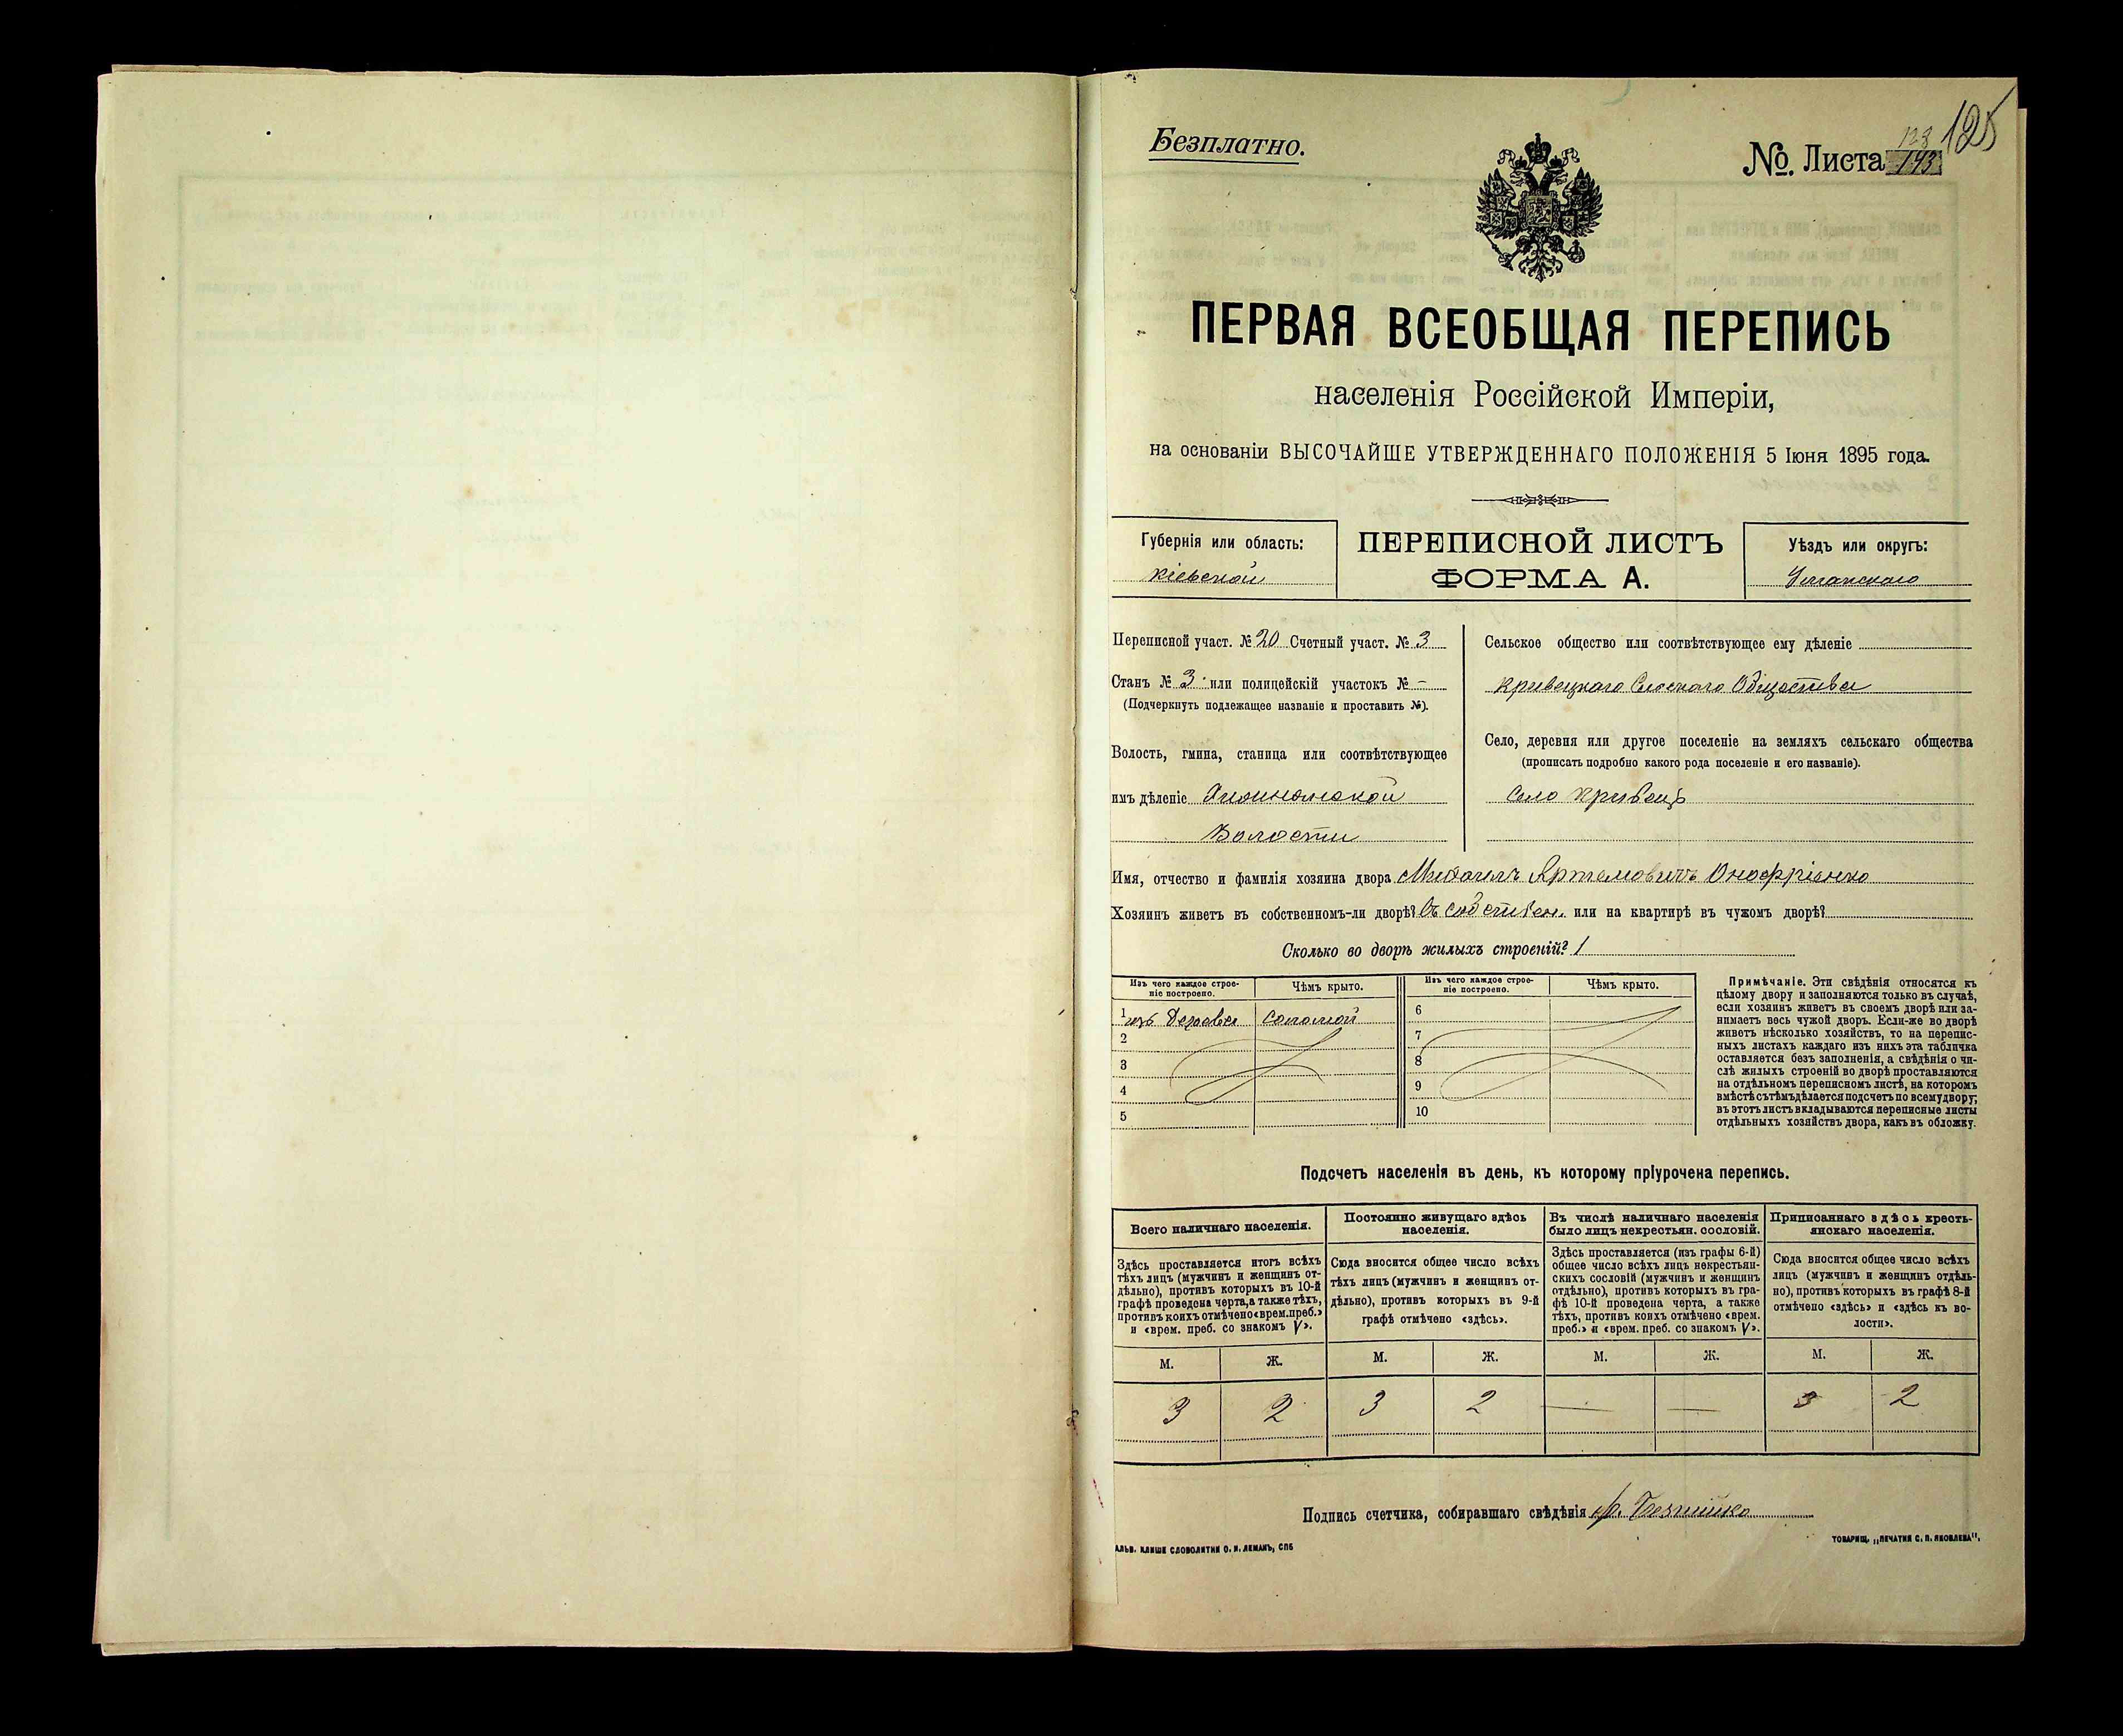 Безплатно.
№. Листа 143
128
125
ПЕРВАЯ ВСЕОБЩАЯ ПЕРЕПИСЬ
населенія Россійской Имперіи,
на основаніи ВЫСОЧАЙШЕ УТВЕРЖДЕННАГО ПОЛОЖЕНІЯ 5 Іюня 1895 года.
Губернія или область:
Кіевской
ПЕРЕПИСНОЙ ЛИСТЪ
ФОРМА А.
Уѣздъ или округъ:
Уманскаго
Переписной участ. № 20 Счетный участ. № 3
Станъ № 3 или полицейскій участокъ № -
(Подчеркнуть подлежащее названіе и проставить №).
Волость, гмина, станица или соотвѣтствующее
имъ дѣленіе
Волости
Сельское общество или соотвѣтствующее ему дѣленіе
Кривецкаго Сельскаго Общества
Село, деревня или другое поселеніе на земляхъ сельскаго общества
(прописать подробно какого рода поселеніе и его названіе).
Село Кривецъ
Имя, отчество и фамилія хозяина двора Михаилъ Артемовичъ Онофріенко
Хозяинъ живетъ въ собственномъ-ли дворѣ? Въ собствен. или на квартирѣ въ чужомъ дворѣ?
Сколько во дворѣ жилыхъ строеній? 1
Изъ чего каждое строе-
ніе построено.
Чѣмъ крыто.
1 изъ Дерева Соломой
2
3
4
5
Изъ чего каждое строе-
ніе построено.
Чѣмъ крыто.
6
7
8
9
10
Примѣчаніе. Эти свѣдѣнія относятся къ
цѣлому двору и заполняются только въ случаѣ,
если хозяинъ живетъ въ своемъ дворѣ или за-
нимаетъ весь чужой дворъ. Если-же во дворѣ
живетъ нѣсколько хозяйствъ, то на перепис-
ныхъ листахъ каждаго изъ нихъ эта табличка
оставляется безъ заполненія, а свѣдѣнія о чи-
слѣ жилыхъ строеній во дворѣ проставляются
на отдѣльномъ переписномъ листѣ, на которомъ
вмѣстѣ съ тѣмъ дѣлается подсчетъ по всему двору;
въ этотъ листъ вкладываются переписные листы
отдѣльныхъ хозяйствъ двора, какъ въ обложку.
Подсчетъ населенія въ день, къ которому пріурочена перепись.
Всего наличнаго населенія.
Здѣсь проставляется итогъ всѣхъ
тѣхъ лицъ (мужчинъ и женщинъ от-
дѣльно), противъ которыхъ въ 10-й
графѣ проведена черта, а также тѣхъ,
противъ коихъ отмѣчено «врем. преб.»
и «врем. преб. со знакомъ V».
Постоянно живущаго здѣсь
населенія.
Сюда вносится общее число всѣхъ
тѣхъ лицъ (мужчинъ и женщинъ от-
дѣльно), противъ которыхъ въ 9-й
графѣ отмѣчено «здѣсь».
Въ числѣ наличнаго населенія
было лицъ некрестьян. сословій.
Здѣсь проставляется (изъ графы 6-й)
общее число всѣхъ лицъ некрестьян-
скихъ сословій (мужчинъ и женщинъ
отдѣльно), противъ которыхъ въ гра-
фѣ 10-й проведена черта, а также
тѣхъ, противъ коихъ отмѣчено «врем.
преб.» и «врем. преб. со знакомъ V».
Приписаннаго здѣсь кресть-
янскаго населенія.
Сюда вносится общее число всѣхъ
лицъ (мужчинъ и женщинъ отдѣль-
но), противъ которыхъ въ графѣ 8-й
отмѣчено «здѣсь» и «здѣсь къ во-
лости».
М. Ж. М. Ж. М. Ж. М. Ж.
3 2 3 2 — — 3 2
Подпись счетчика, собиравшаго свѣдѣнія
АЛЬВ. КЛИШЕ СЛОВОЛИТНИ О. И. ЛЕМАНЪ, СПБ
ТОВАРИЩ. „ПЕЧАТНЯ С. П. ЯКОВЛЕВА".